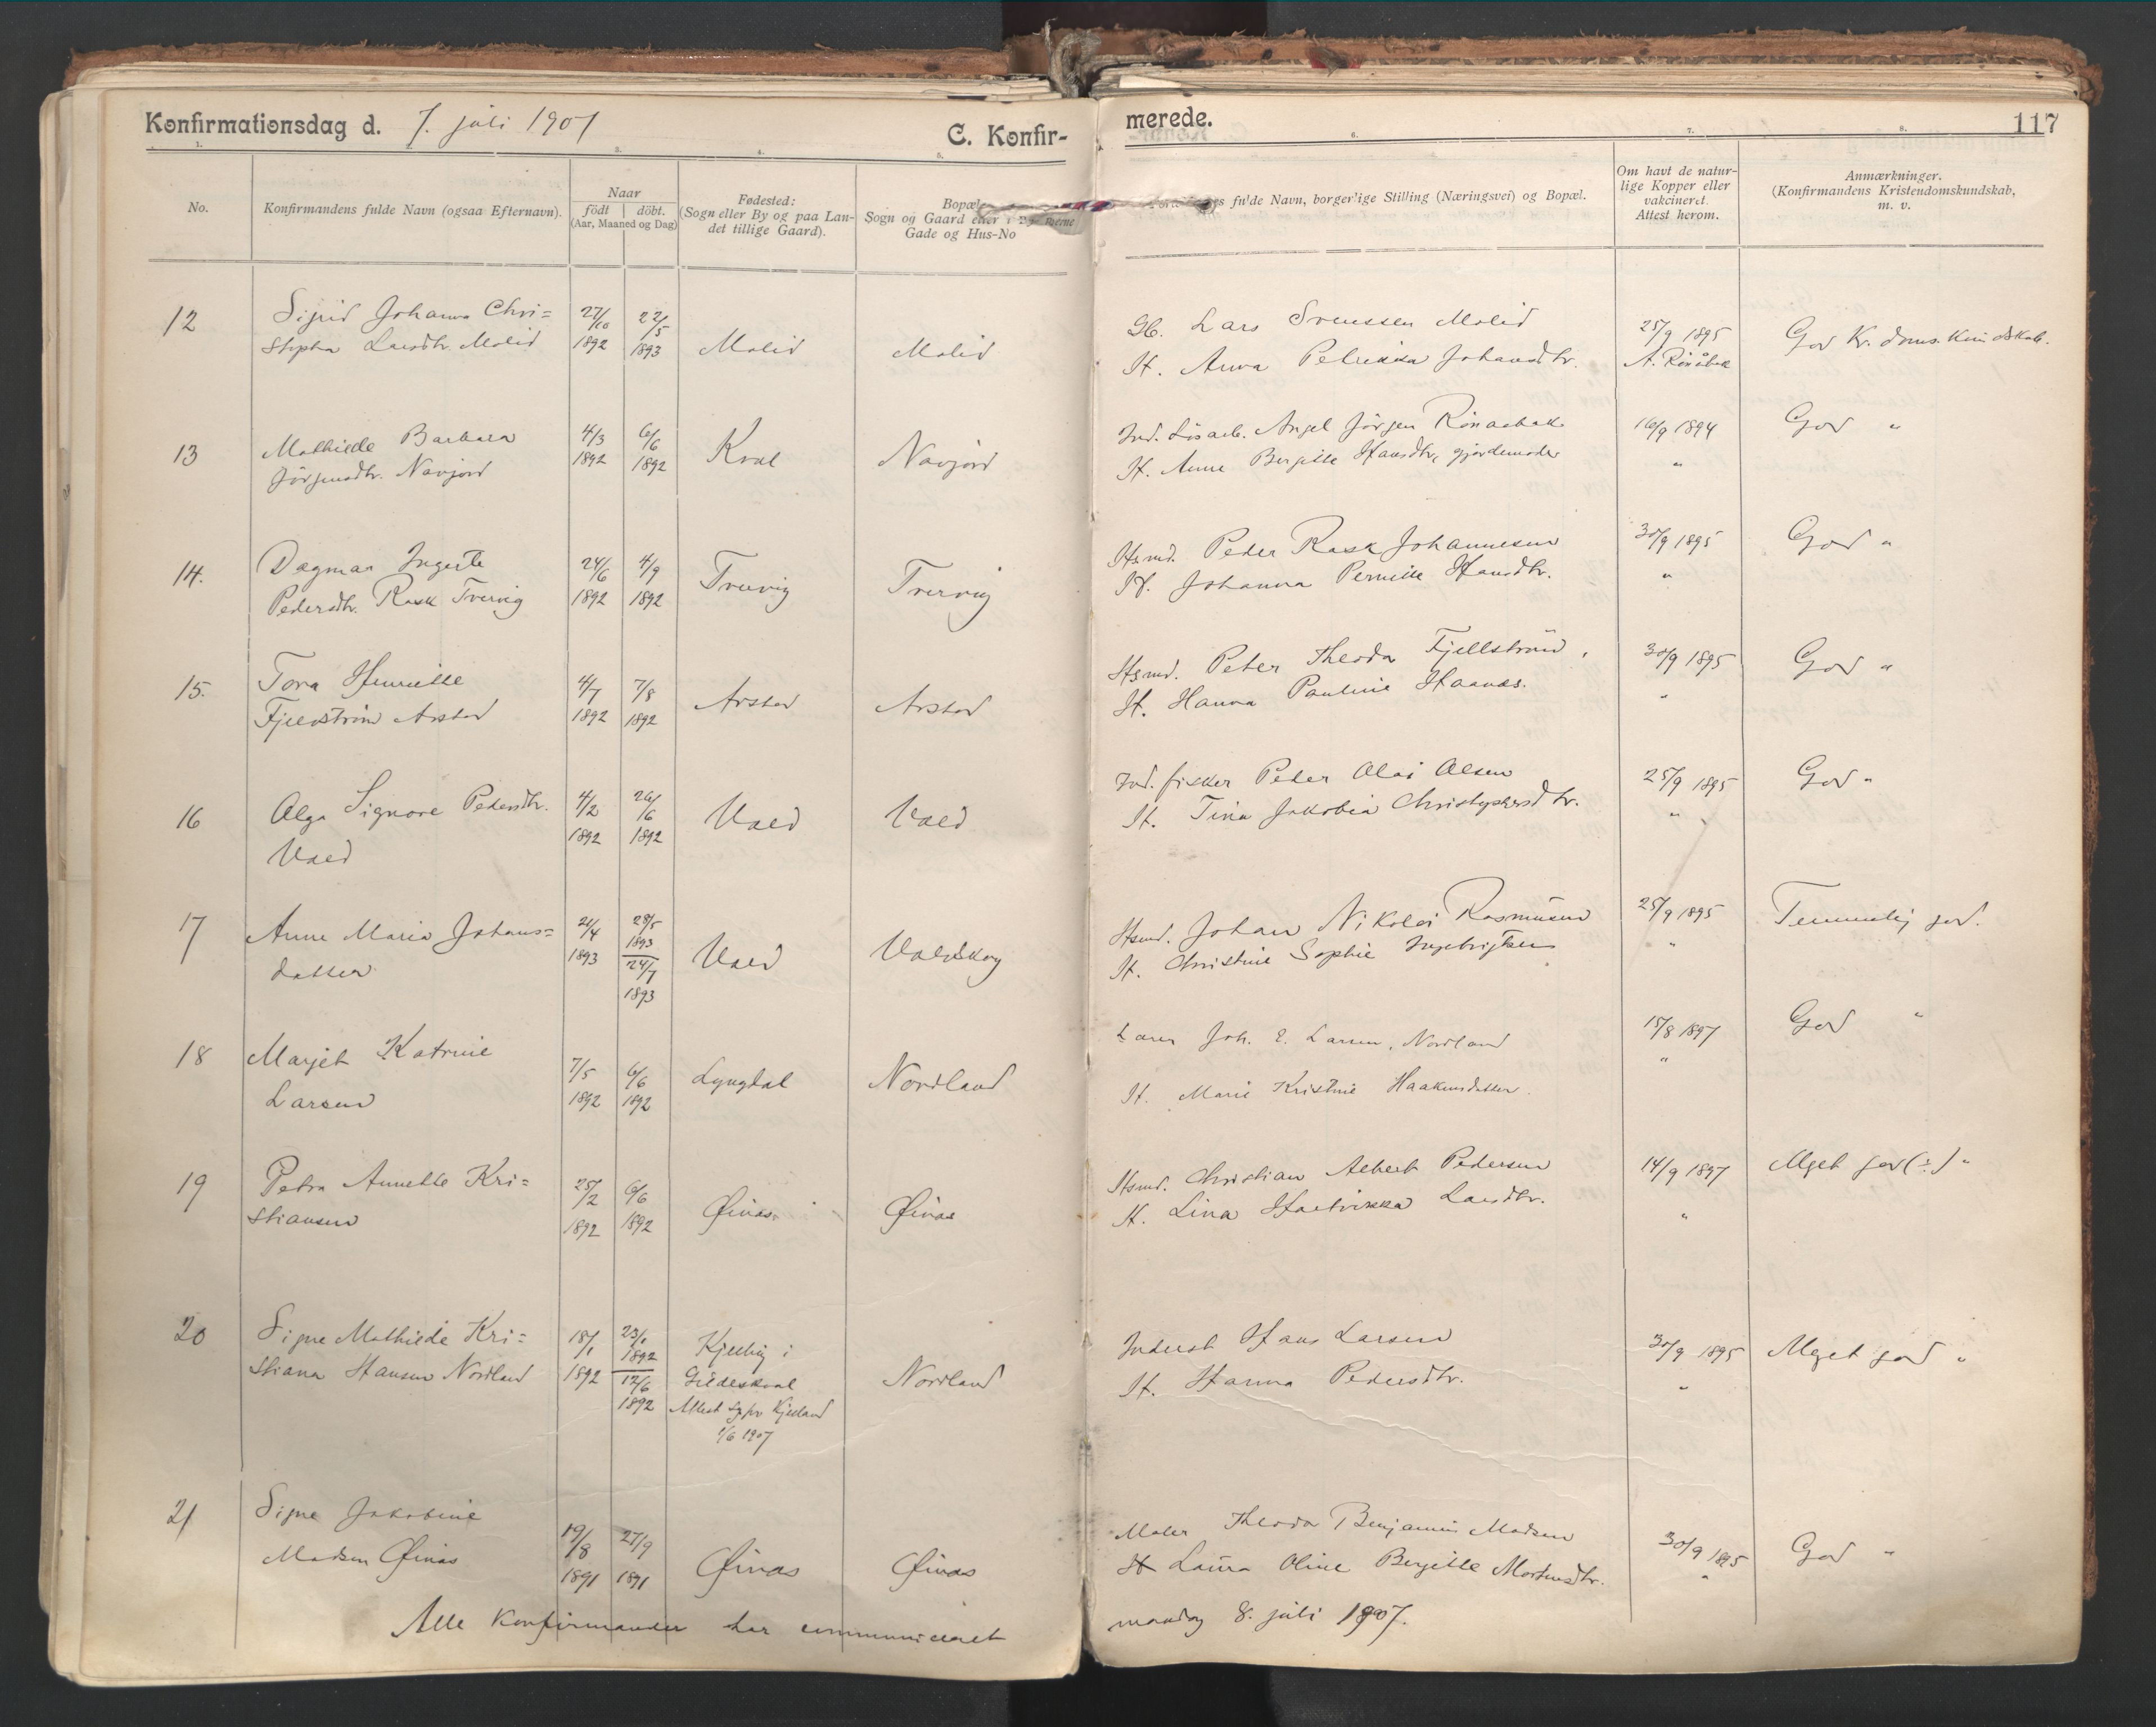 Konfirmationsdag d. 7. juli 1907
C. Konfir-
merede.
117
1. 3. 4. 5. 6. 7. 8.
No.
Konfirmandens fulde Navn (ogsaa Efternavn).
Naar
født | døbt.
(Aar, Maaned og Dag)
Fødested:
(Sogn eller By og paa Lan-
det tillige Gaard).
Bopæl
Sogn og Gaard eller i
Gade og Hus-No
fulde Navn, borgerlige Stilling (Næringsvei) og Bopæl.
Om havt de natur-
lige Kopper eller
vakcineret.
Attest herom.
Anmærkninger.
(Konfirmandens Kristendomskundskab,
m. v.
12
Sigrid Johanna Chri=
stopha Larsdtr. Molid
27/10 1892
22/5 1893
Molid
Molid
Gb. Lars Svenssen Molid
H. Anna Petrikka Johansdtr.
25/9 1895
A. Rönåbek
God Kr.doms.kundskab.
13
Mathilde Barbara
Jörgensdtr. Navjord
4/3 1892
6/6 1892
Kval
Navjord
Ind. Lösarb. Angel Jörgen Rönaabek
H. Anne Bergitte Hansdtr, gjordemoder
16/9 1894
"
God "
14.
Dagmar Ingerte
Pedersdtr. Rask Tvervig
24/6 1892
4/9 1892
Tvervig
Tvervig
Hsmd. Peder Rask Johannesen
H. Johanna Pernille Hansdtr.
30/9 1895
"
God "
15.
Tora Henriette
Fjeldström Arstad
4/7 1892
7/8 1892
Arstad
Arstad
Hsmd. Peter Theodor Fjellström,
H. Hanna Pauline Haanæs.
30/9 1895
"
God "
16
Olga Signore Pedersdtr.
Vald
4/2 1892
26/6 1892
Vald
Vald
Ind. fisker Peder Olai Olsen
H. Tina Jakobia Christophersdtr.
25/9 1895
"
God "
17
Anne Maria Johans=
datter
21/4 1893
28/5 1893
24/7 1893
Vald
Valdskog
Hsmd. Johan Nikolai Rasmusen
H. Christine Sophie Ingebrigtsen
25/9 1895
"
Temmelig god.
18
Marjet Katrine
Larsen
7/5 1892
6/6 1892
Lyngdal
Nordland
Joh. E. Larsen, Nordland
H. Marie Kristine Haakensdatter.
15/8 1897
"
God "
19
Petra Annette Kri=
stiansen
25/2 1892
6/6 1892
Øinæs
Øinæs
Hsmd. Christian Albert Pedersen
H. Lina Hartvikka Larsdtr.
14/9 1897
"
Meget god (÷) "
20
Signe Mathilde Kri=
stiana Hansen Nordland
18/1 1892
23/1 1892
12/6 1892
Kjelling i
Gildeskaal
Attest sgpr Kjelland
1/6 1907
Nordland
Inderst Hans Larsen
H. Hanna Pedersdtr.
30/9 1895
"
Meget god "
21
Signe Jakobine
Madsen Øinæs
19/8 1891
27/9 1891
Øinæs
Øinæs
Maler Theodor Benjamin Madsen
H Laura Oline Bergitte Mortensdtr.
30/9 1895
"
God "
Alle konfirmander har communiceret
mandag 8. juli 1907.